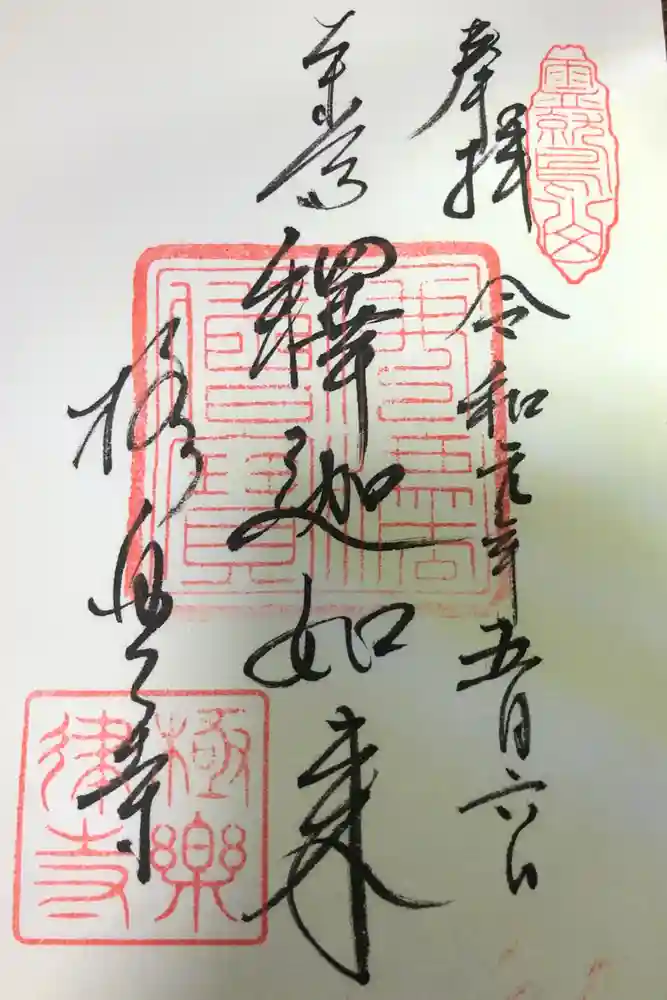 奉拝
令和元年五月六日
釋迦如来
極楽寺
霊鷲山
極樂律寺